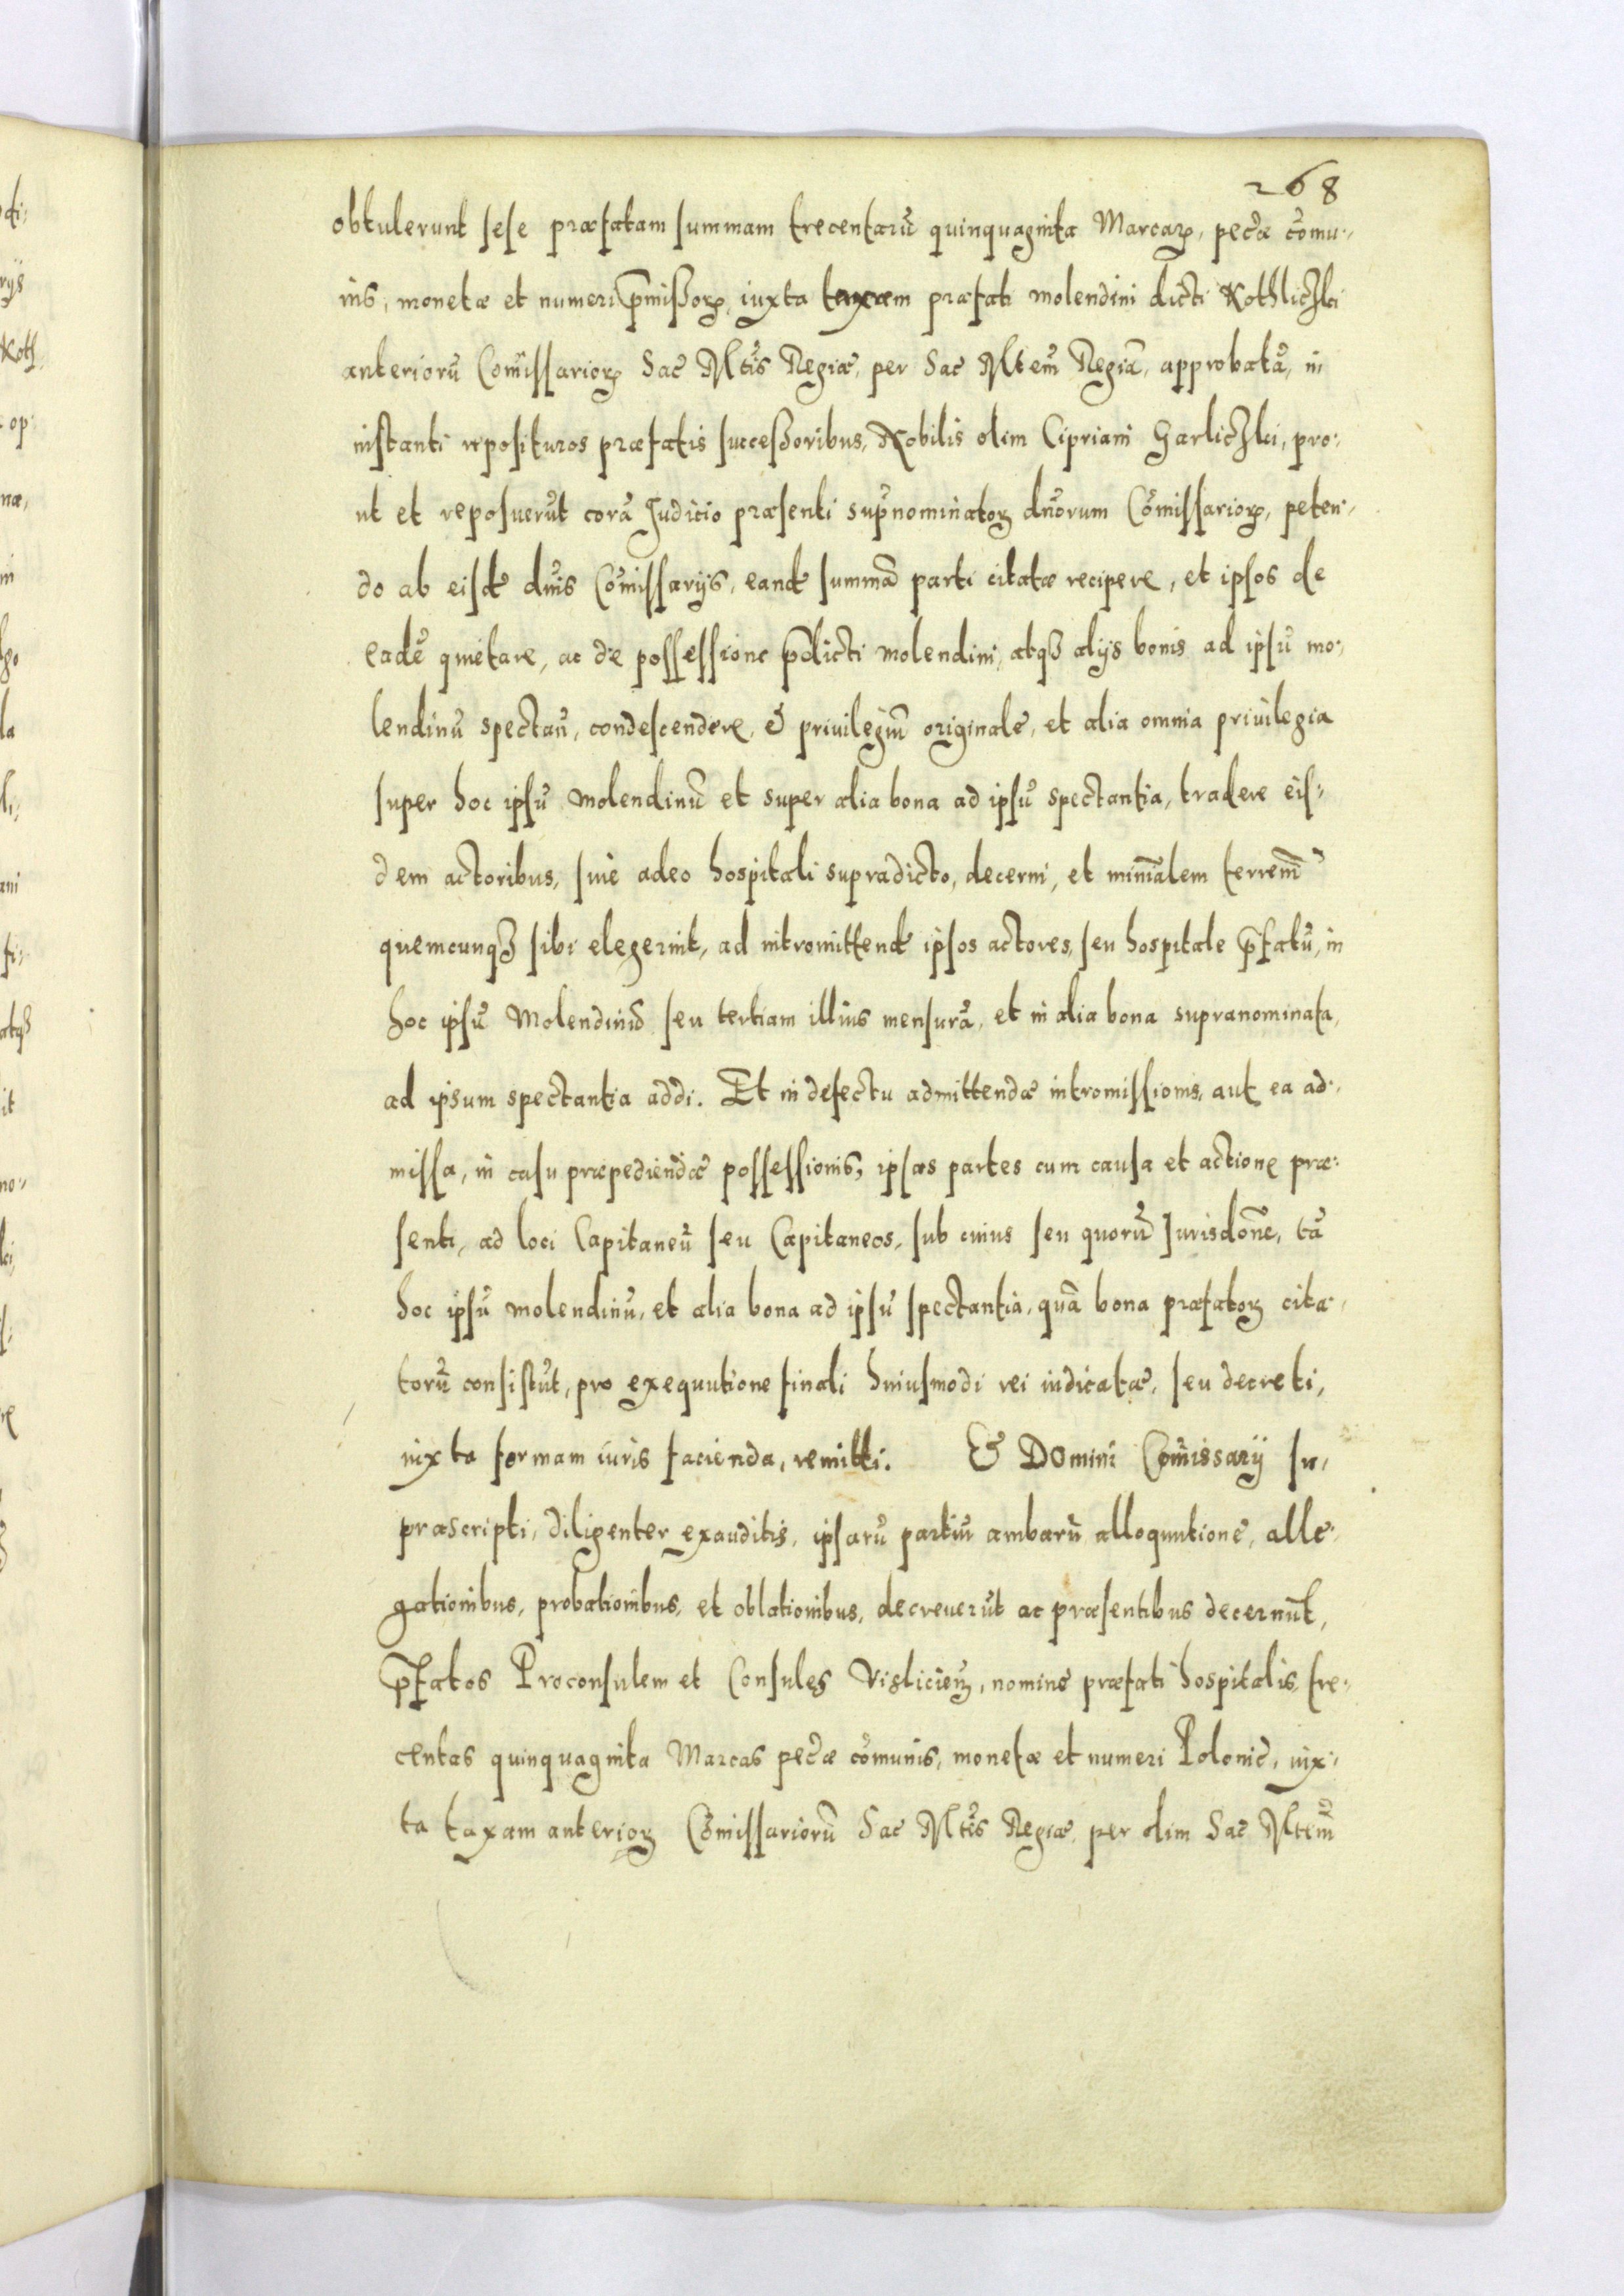 268
obtulerunt sese præfatam summam trecentarū quinquaginta Marcarꝝ, pecæ cōmu-
nis, monetæ et numeri p̄missorꝝ, iuxta taxam præfati molendini dicti Kothliczki
anteriorū Com̄issariorꝝ Sac Mtīs Regiæ, per Sac Mtem̄ Regiā, approbatā, in
instanti reposituros præfatis successoribus, Nobilis olim Cipriani Garliczki, pro-
ut et reposuerūt corā Judicio præsenti sup̄nominatorꝝ dn̄orum Cōmissariorꝝ, peten-
do ab eisd dn̄is Cōmissarijs, eand summā parti citatæ recipere, et ipsos de
eadē quietare, ac de possessione p̄dicti molendini, atqꝫ alijs bonis ad ipsū mo-
lendinū spectan̄, condescendere, & priuilegiū originale, et alia omnia priuilegia
super hoc ipsū molendinū et super alia bona ad ipsū spectantia, tradere eis-
dem actoribus, siue adeo hospitali supradicto, decerni, et minīalem terrem̄
quemcunqꝫ sibi elegerint, ad intromittend ipsos actores, seu hospitale p̄fatū, in
hoc ipsū Molendinū seu tertiam illius mensurā, et in alia bona supranominata,
ad ipsum spectantia addi. Et in defectu admittendæ intromissionis, aut ea ad-
missa, in casu præpediendæ possessionis, ipsas partes cum causa et actione præ-
senti, ad loci Capitaneū seu Capitaneos, sub cuius seu quorū Jurisdōne, tā
hoc ipsū molendinū, et alia bona ad ipsū spectantia, quā bona præfatorꝝ cita-
torū consistūt, pro exequutione finali huiusmodi rei iudicatæ, seu decreti,
iuxta formam iuris facienda, remitti. & Domini Com̄issarij su-
præscripti, diligenter exauditis, ipsarū partiū ambarū alloquutione, alle-
gationibus, probationibus, et oblationibus, decreuerūt ac præsentibus decernūt,
p̄fatos Proconsulem et Consules Visliciēn, nomine præfati hospitalis, tre-
centas quinquaginta Marcas pecæ cōmunis, monetæ et numeri Polonic, iux-
ta taxam anteriorꝝ Cōmissariorū Sac Mtīs Regiæ, per olim Sac Mtem̄